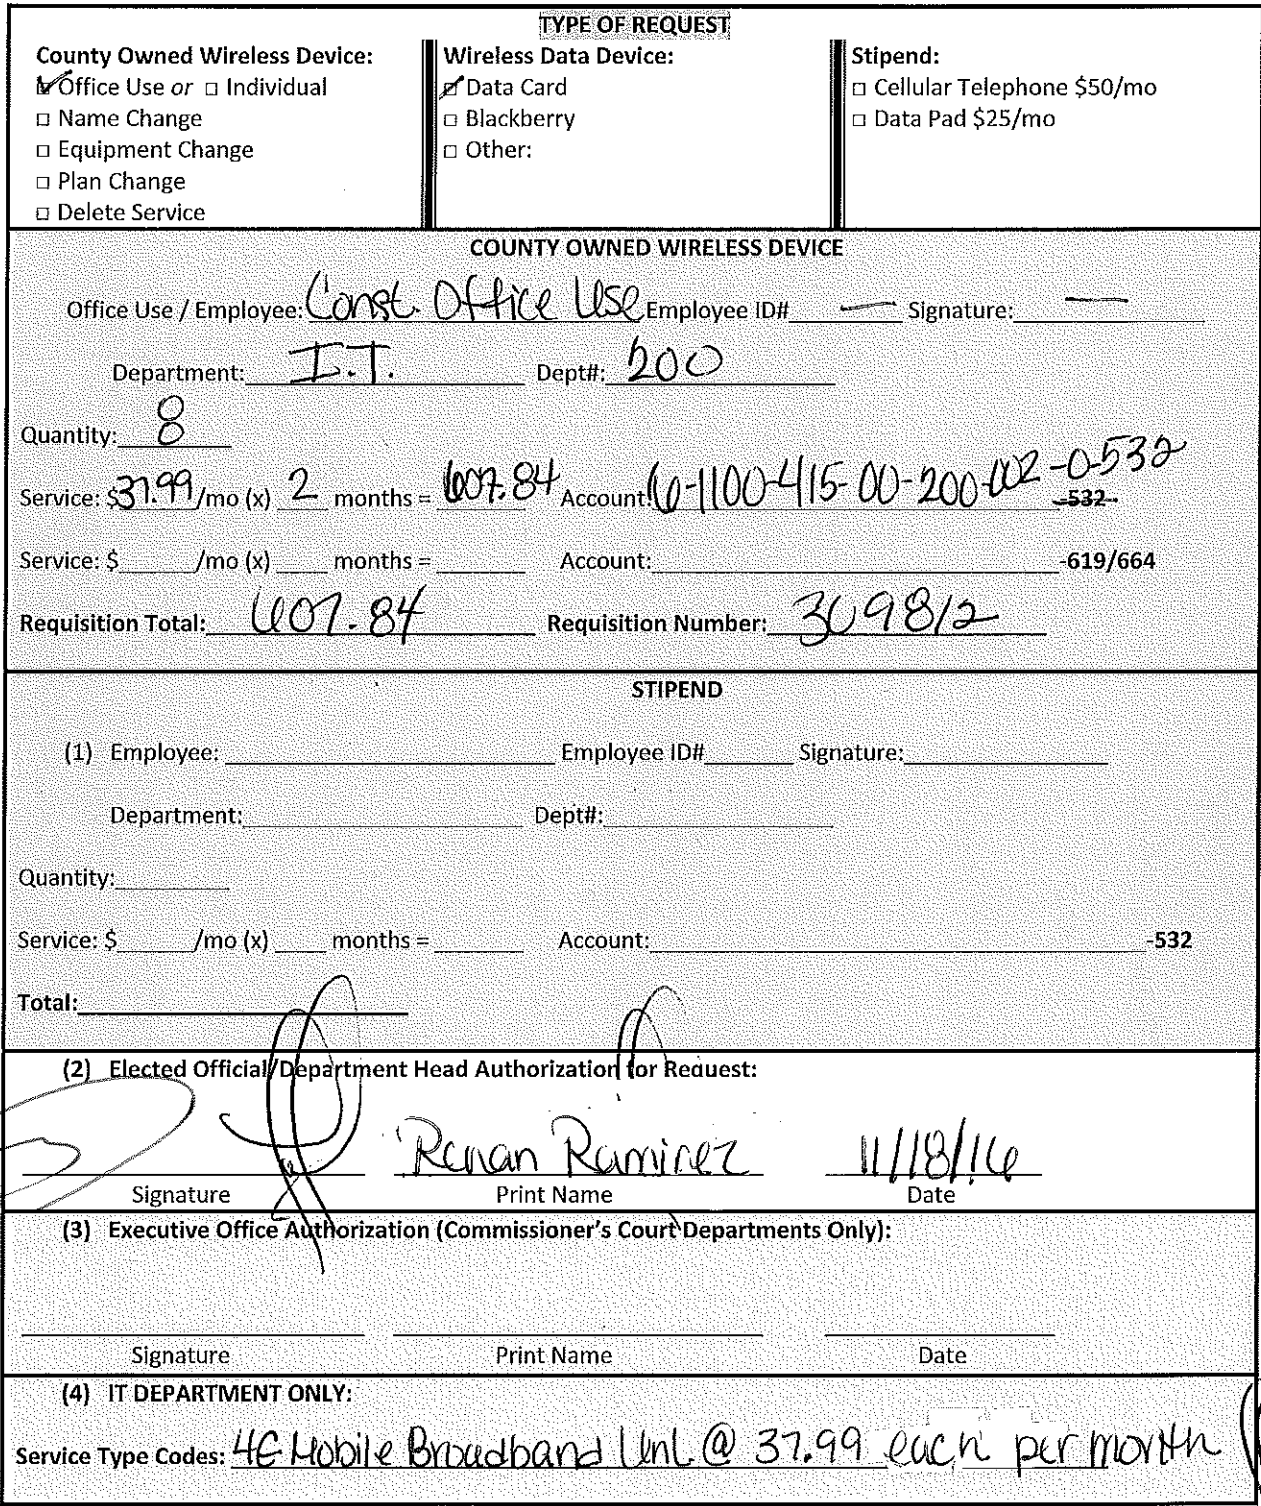 TYPE OF REQUEST
County Owned Wireless Device: Wireless Data Device: Stipend:
☑ Office Use or □ Individual ☑ Data Card □ Cellular Telephone $50/mo
□ Name Change □ Blackberry □ Data Pad $25/mo
□ Equipment Change □ Other:
□ Plan Change
□ Delete Service
COUNTY OWNED WIRELESS DEVICE
Office Use / Employee: Const. Office Use Employee ID# — Signature: —
Department: I.T. Dept#: 200
Quantity: 8
Service: $37.99 /mo (x) 2 months = 607.84 Account: 6-1100-415-00-200-002-0-532 -532-
Service: $ /mo (x) months = Account: -619/664
Requisition Total: 607.84 Requisition Number: 309812
STIPEND
(1) Employee: Employee ID# Signature:
Department: Dept#:
Quantity:
Service: $ /mo (x) months = Account: -532
Total:
(2) Elected Official/Department Head Authorization for Request:
Renan Ramirez 11/18/16
Signature Print Name Date
(3) Executive Office Authorization (Commissioner's Court Departments Only):
Signature Print Name Date
(4) IT DEPARTMENT ONLY:
Service Type Codes: 4G Mobile Broadband Unl. @ 37.99 each per month